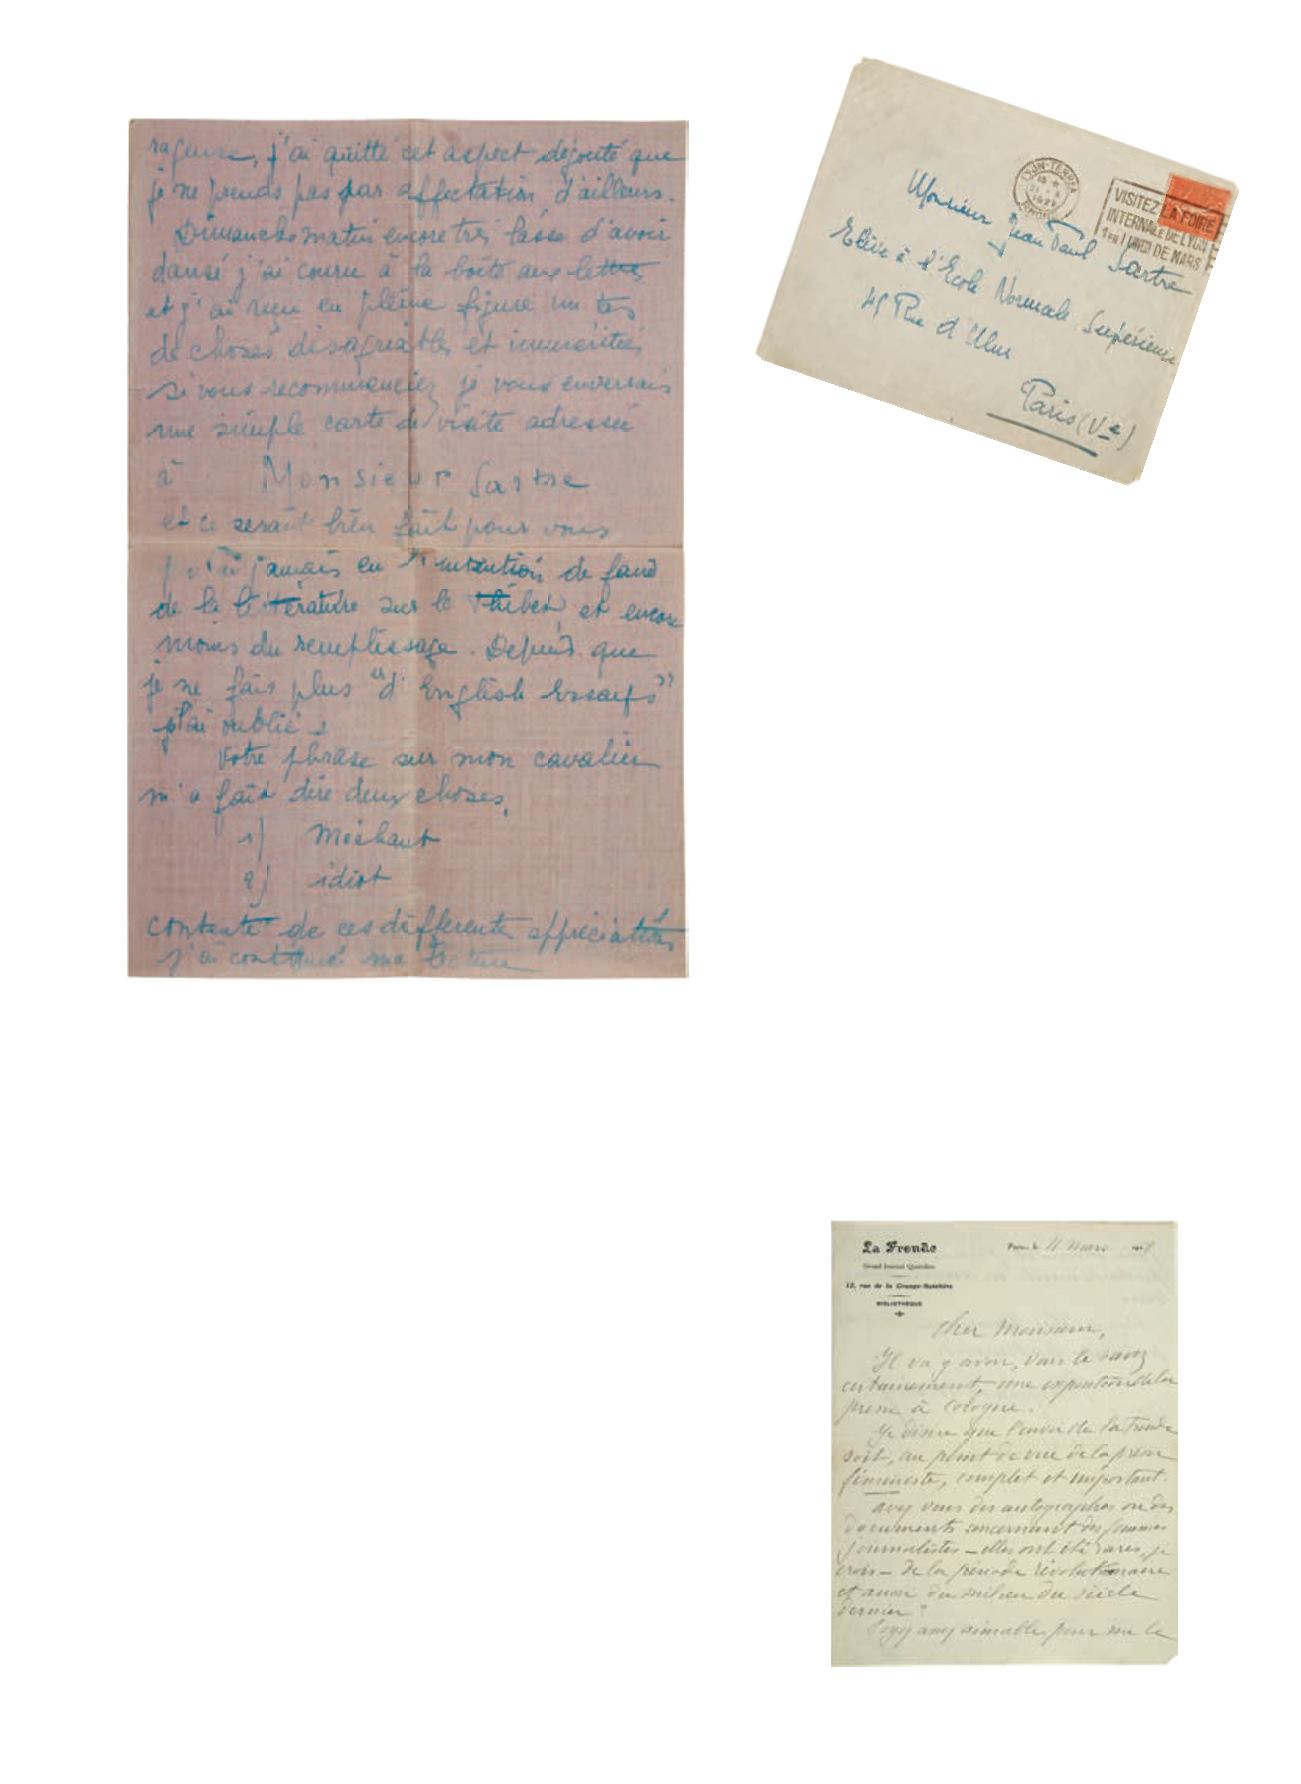 j'ai quitté cet aspect dégouté que
je ne prends pas par affectation d'ailleurs.
Dimanche matin encore très lasse d'avoir
dansé j'ai couru à la boîte aux lettres
et j'ai reçu en pleine figure un tas
de choses désagréables et imméritées
si vous recommenciez je vous enverrais
une simple carte de visite adressée
à Monsieur Sartre
et ce serait bien fait pour vous
jamais eu l'intention de faire
de la littérature sur le Thibet, et encore
moins du remplissage. Depuis que
je ne fais plus "d'English Essays"
j'ai oublié
Votre phrase sur mon cavalier
m'a fait dire deux choses.
1) Méchant
2) idiot
contente de ces différentes appréciations
j'ai continué ma lecture
VISITEZ LA FOIRE
INTERNALE DE LYON
1ER LUNDI DE MARS
Monsieur Jean Paul Sartre
Elève à l'Ecole Normale Supérieure
45 Rue d'Ulm
Paris (Ve)
La Fronde
Grand Journal Quotidien
12, rue de la Grange-Batelière
BIBLIOTHÈQUE
Paris, le 11 Mars
Cher Monsieur,
Il va y avoir, vous le savez
certainement, une exposition de la
presse à Cologne.
Je désire que l'envoi de la Fronde
soit, au point de vue de la presse
féministe, complet et important.
avez vous des autographes ou des
documents concernant des femmes
journalistes – elles ont été rares, je
crois – de la période révolutionnaire
et aussi du milieu du siècle
dernier ?
Soyez assez aimable pour me le